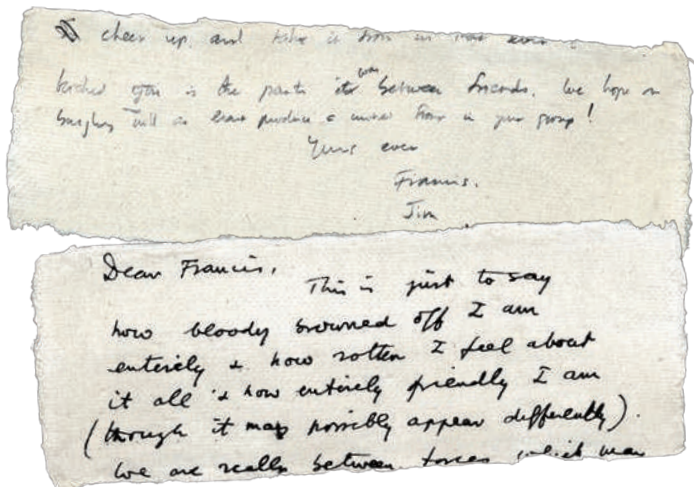 cheer up, and take it from us that even
kicked you in the pants it was between friends. We hope our
burglary will at least produce a united front in your group!
Yours ever
Francis.
Jim
Dear Francis,
This is just to say
how bloody browned off I am
entirely & how rotten I feel about
it all & how entirely friendly I am
(though it may possibly appear differently).
We are really between forces which may